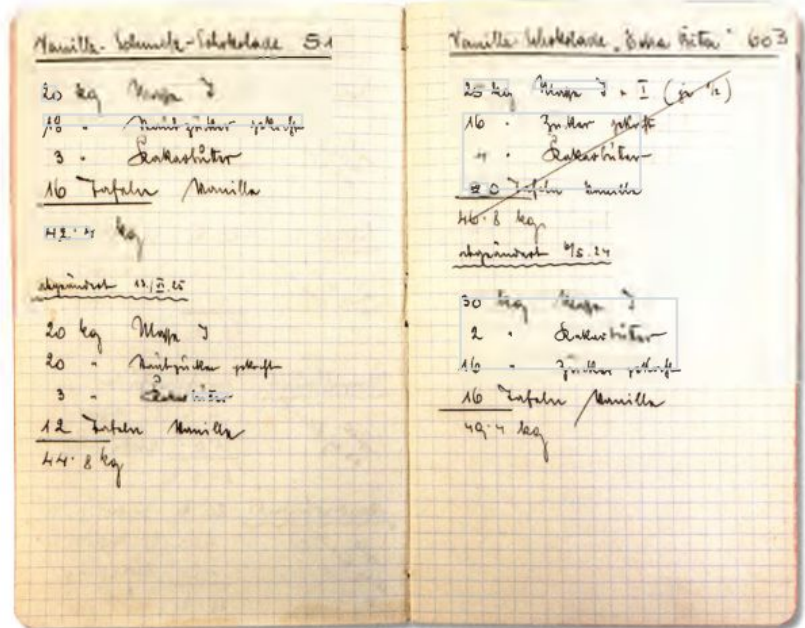 Vanille-Schmelz-Schokolade 51
20 kg Masse I
18 " Staubzucker gekocht
3 " Kakaobutter
16 Tafeln Vanille
42.4 kg
abgeändert
20 kg Masse I
20 " Staubzucker gekocht
3 " Kakaobutter
12 Tafeln Vanille
44.8 kg
Vanille-Schokolade „Extra " 603
25 kg Masse I + II (je ½)
16 " Zucker
4 " Kakaobutter
Tafeln Vanille
46.8 kg
abgeändert
30 kg Masse I
2 " Kakaobutter
16 " Zucker
16 Tafeln Vanille
49.4 kg